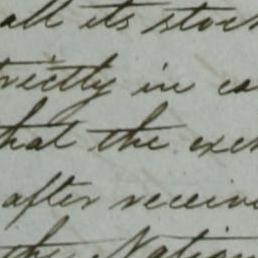 all its stock
rictly in co
hat the exch
after receiv
the Nation